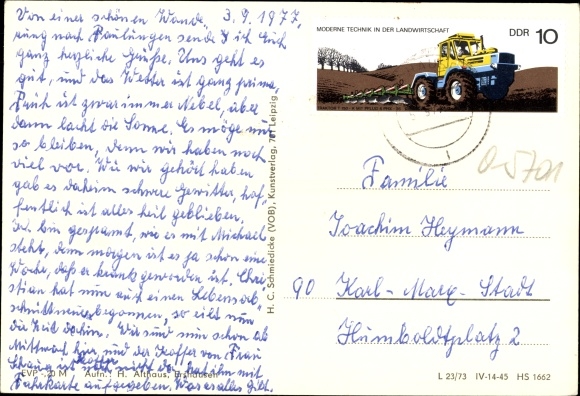 Von einer schönen Wande- 3.9.1977
rung nach Paulinzen sende ich Euch
ganz herzliche Grüße. Uns geht es
gut, und das Wetter ist ganz prima,
Früh ist zwar immer Nebel, aber
dann lacht die Sonne. Es möge nur
so bleiben, denn wir haben noch
viel vor. Wie wir gehört haben
gab es daheim schwere Gewitter, hof-
fentlich ist alles heil geblieben.
bin gespannt, wie es mit Michael
steht, denn morgen ist es ja schon eine
Woche, daß er krank geworden ist. Chri-
stian hat nun auch einen Lebensab-
schnitt begonnen, so eilt nun
die Zeit dahin. Wir sind nun schon ab
Mittwoch hier, und der Koffer von Frau
ist noch nicht da, hat ihn mit
Fahrkarte aufgegeben. Was es alles gibt.
EVP -,20 M Aufn.: H. Althaus,
H. C. Schmiedicke (VOB), Kunstverlag, 701 Leipzig
MODERNE TECHNIK IN DER LANDWIRTSCHAFT DDR 10
Familie
Joachim Heymann
90 Karl-Marx-Stadt
Humboldtplatz 2
L 23/73 IV-14-45 HS 1662